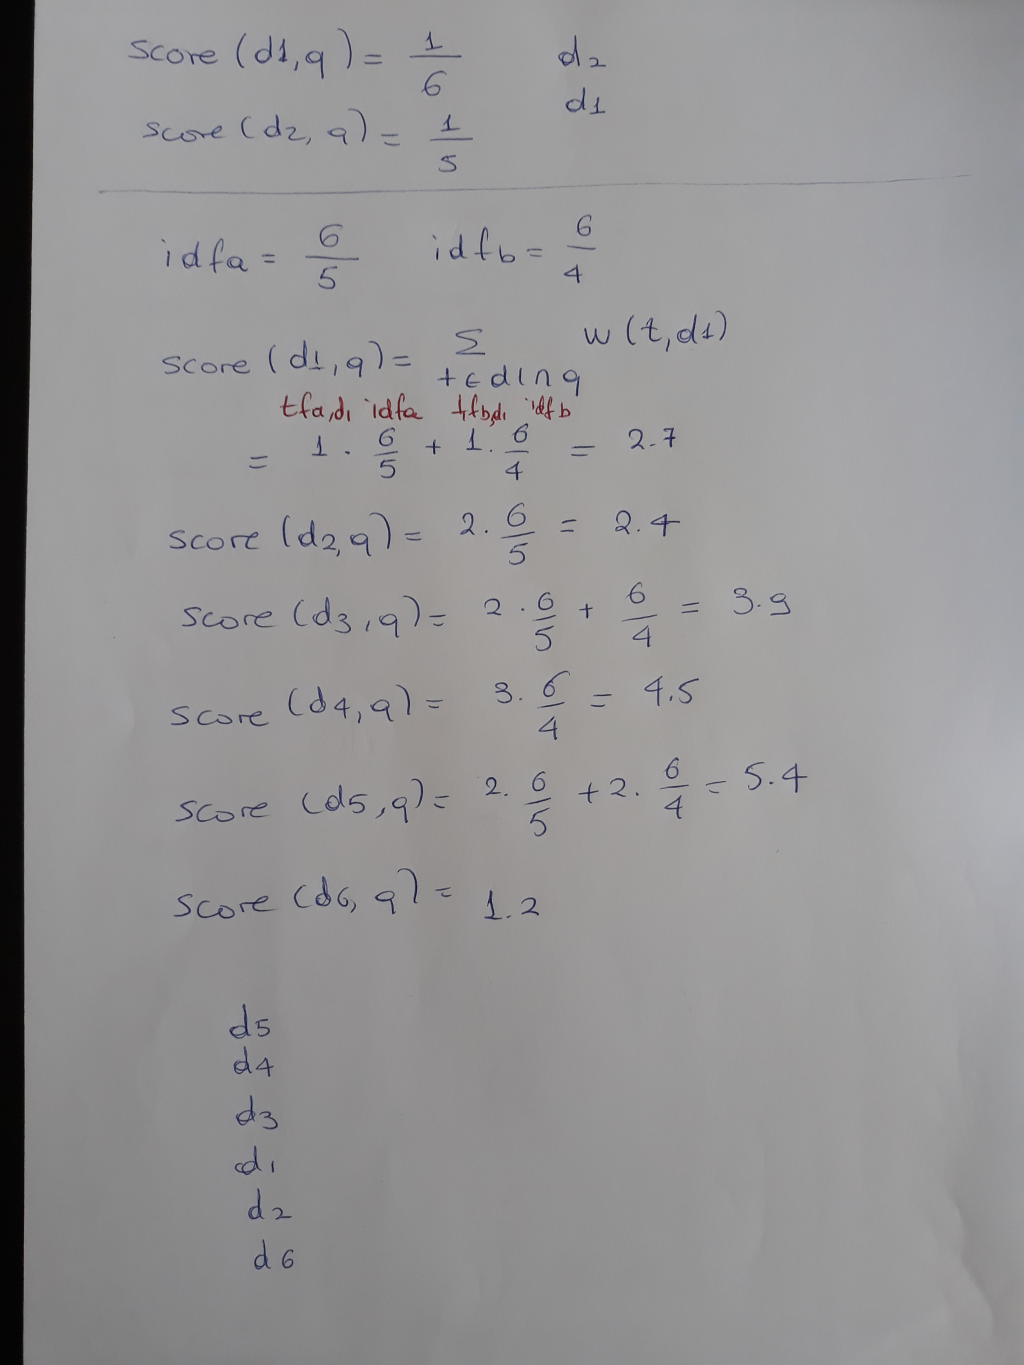 score (d1, q) = 1/6 d2
d1
score (d2, q) = 1/5
idfa = 6/5 idfb = 6/4
score (d1, q) = Σ t ∈ d1 ∩ q w (t, d1)
tfa,d1 idfa tfb,d1 idfb
= 1 . 6/5 + 1 . 6/4 = 2.7
score (d2, q) = 2 . 6/5 = 2.4
score (d3, q) = 2 . 6/5 + 6/4 = 3.9
score (d4, q) = 3 . 6/4 = 4.5
score (d5, q) = 2 . 6/5 + 2 . 6/4 = 5.4
score (d6, q) = 1.2
d5
d4
d3
d1
d2
d6